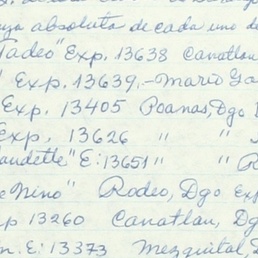 uza absoluta de cada uno de
Tadeo" Exp. 13638 Canatlan
" Exp. 13639.- Mario Ga
Exp. 13405 Poanas, Dgo
Exp. 13626 " "
audette" E: 13651 " " Po
e Nino" Rodeo, Dgo Exp
xp 13260 Canatlan, Dg
n. E: 13373 Mezquital, D